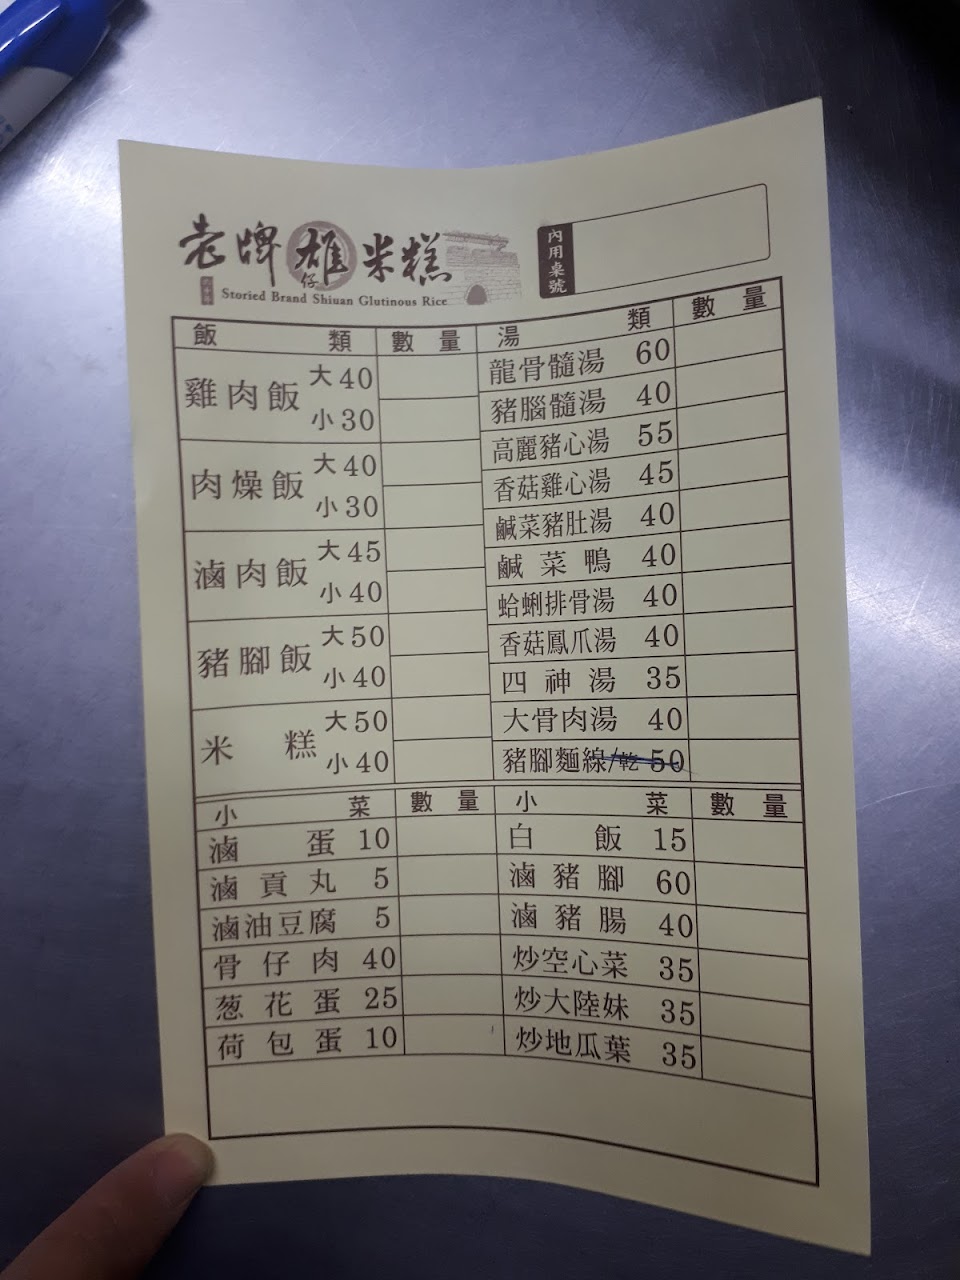 老牌雄仔米糕
Storied Brand Shiuan Glutinous Rice
內用桌號
飯類 數量 湯類 數量
雞肉飯 大40
小30
肉燥飯 大40
小30
滷肉飯 大45
小40
豬腳飯 大50
小40
米糕 大50
小40
龍骨髓湯 60
豬腦髓湯 40
高麗豬心湯 55
香菇雞心湯 45
鹹菜豬肚湯 40
鹹菜鴨 40
蛤蜊排骨湯 40
香菇鳳爪湯 40
四神湯 35
大骨肉湯 40
豬腳麵線/乾 50
小菜 數量 小菜 數量
滷蛋 10 白飯 15
滷貢丸 5 滷豬腳 60
滷油豆腐 5 滷豬腸 40
骨仔肉 40 炒空心菜 35
葱花蛋 25 炒大陸妹 35
荷包蛋 10 炒地瓜葉 35